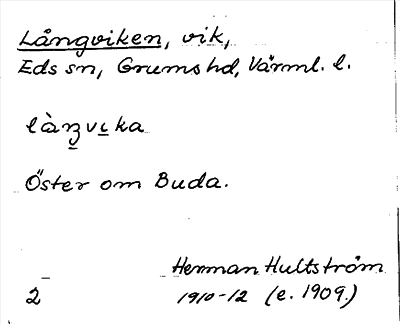 Långviken, vik,
Eds sn, Grums hd, Värml. l.
làŋvi̱ka
Öster om Buda.
Herman Hultström
2 1910-12 (e. 1909.)